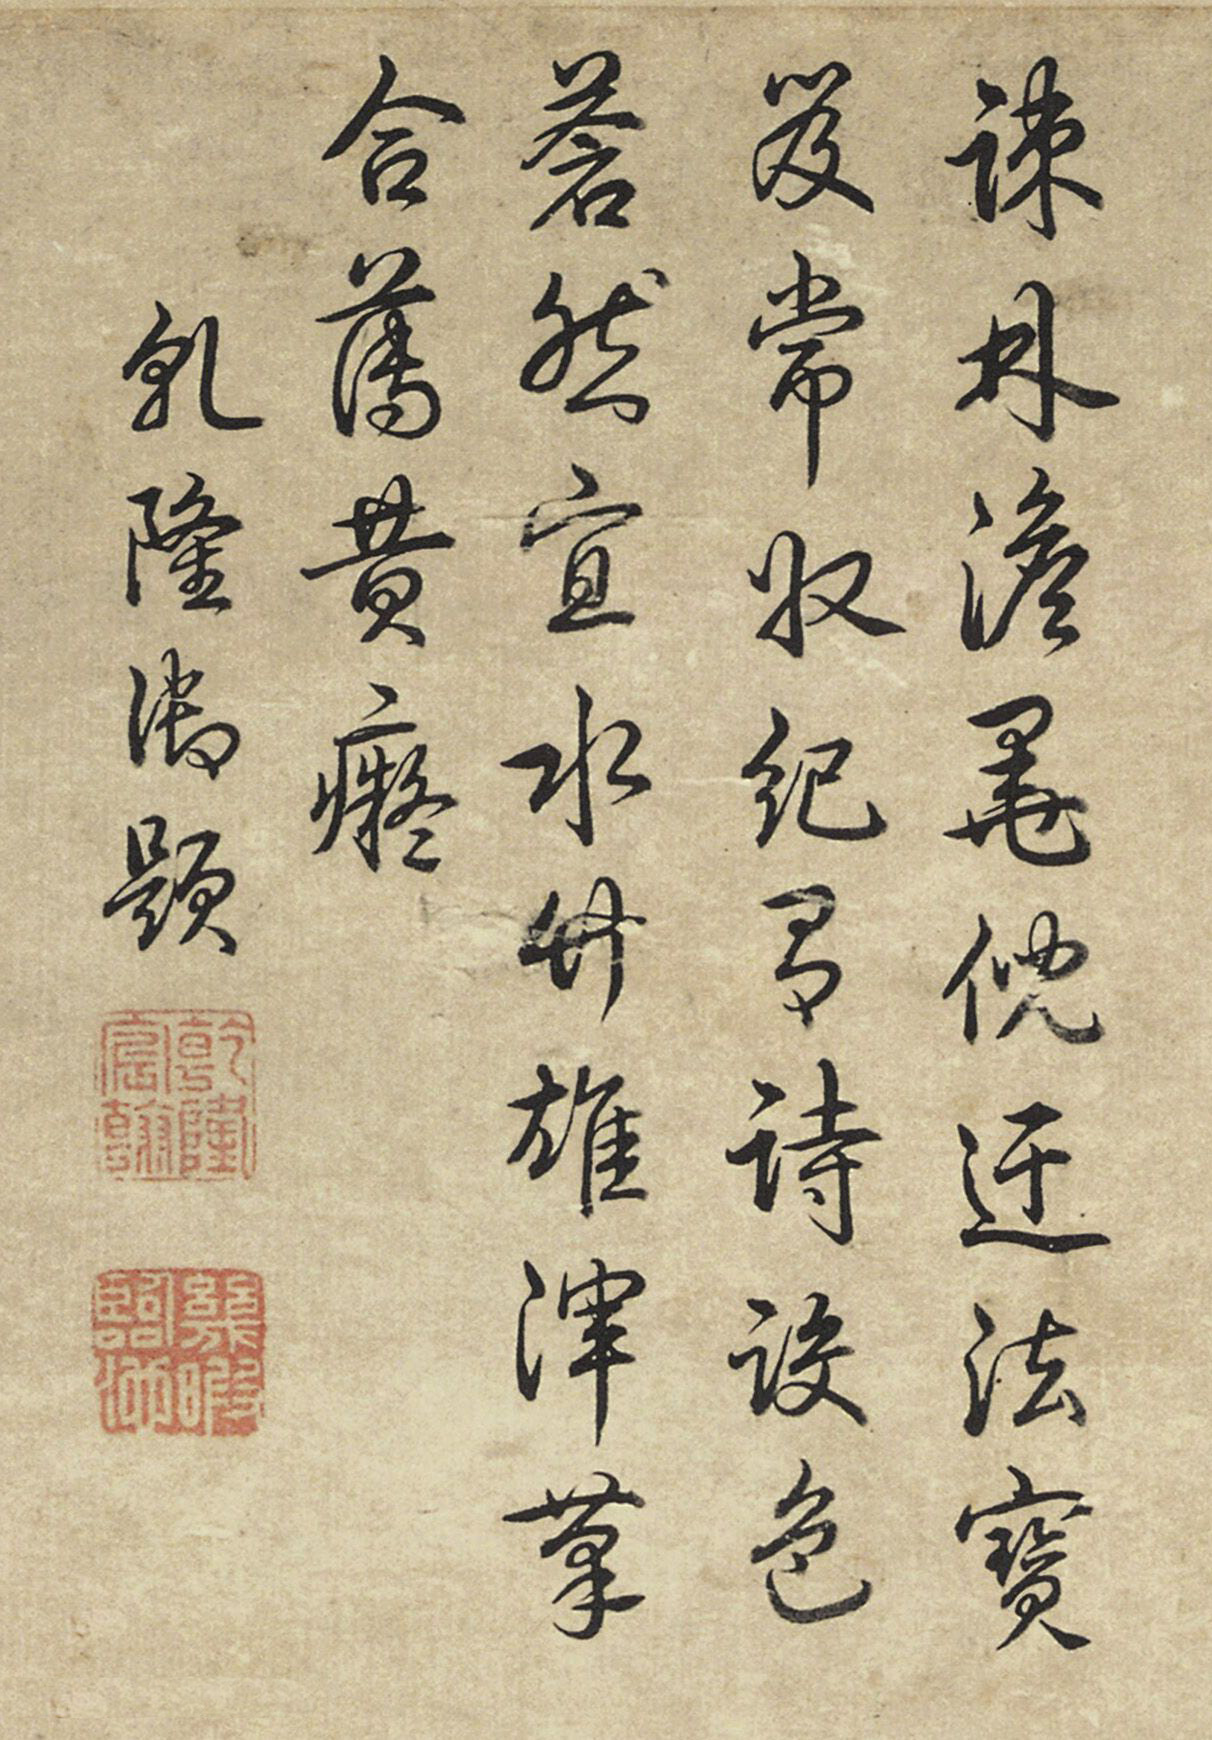 踈林澹罨倪迂法寶
笈常收紀有詩設色
蒼然宜水竹雄渾筆
合舊黃癡
乾隆御題
乾隆宸翰
幾暇臨池